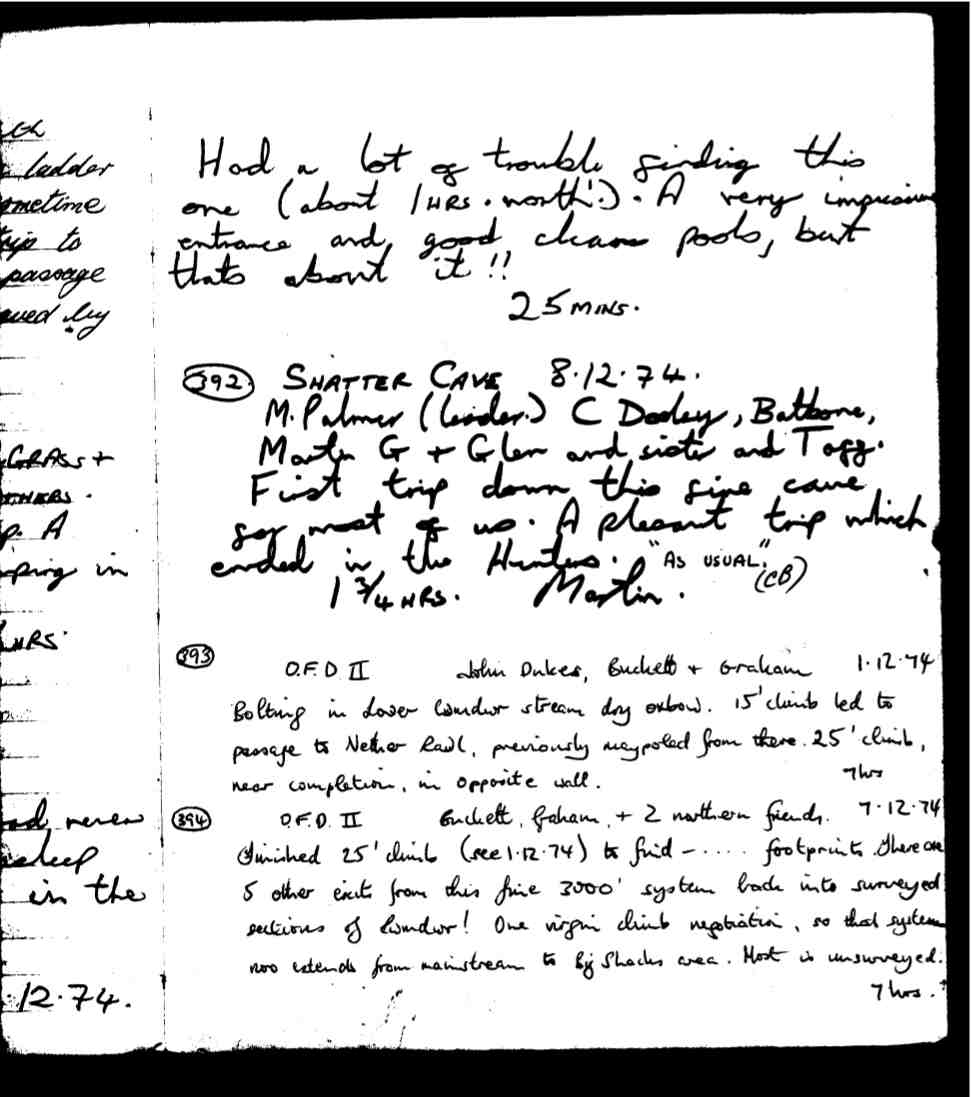 th
ladder
ometime
trip to
passage
owed by
GRASS +
OTHERS.
p. A
ping in
HRS.
had never
asleep
in the
12.74.
Had a lot of trouble finding this
one (about 1 HRS. worth!). A very impressive
entrance and good, clean pools, but
thats about it!!
25 MINS.
392 SHATTER CAVE 8.12.74.
M. Palmer (leader.) C Dooley, Batbone,
Martin G + Glen and sister and Togg.
First trip down this fine cave
for most of us. A pleasant trip which
ended in the Hunters. "AS USUAL." (CB)
1 3/4 HRS. Martin.
393 O.F.D II John Dukes, Buckett + Graham 1.12.74
Bolting in Lower Cwmdwr stream dry oxbow. 15' climb led to
passage to Nether Rawl, previously maypoled from there. 25' climb,
near completion, in opposite wall. 7hrs
394 O.F.D. II Buckett, Graham, + 2 northern friends. 7.12.74
Finished 25' climb (see 1.12.74) to find - .... footprints. There are
5 other exits from this fine 3000' system back into surveyed
sections of Cwmdwr! One virgin climb negotiation, so that system
now extends from mainstream to Big Shacks area. Most is unsurveyed.
7 hrs.